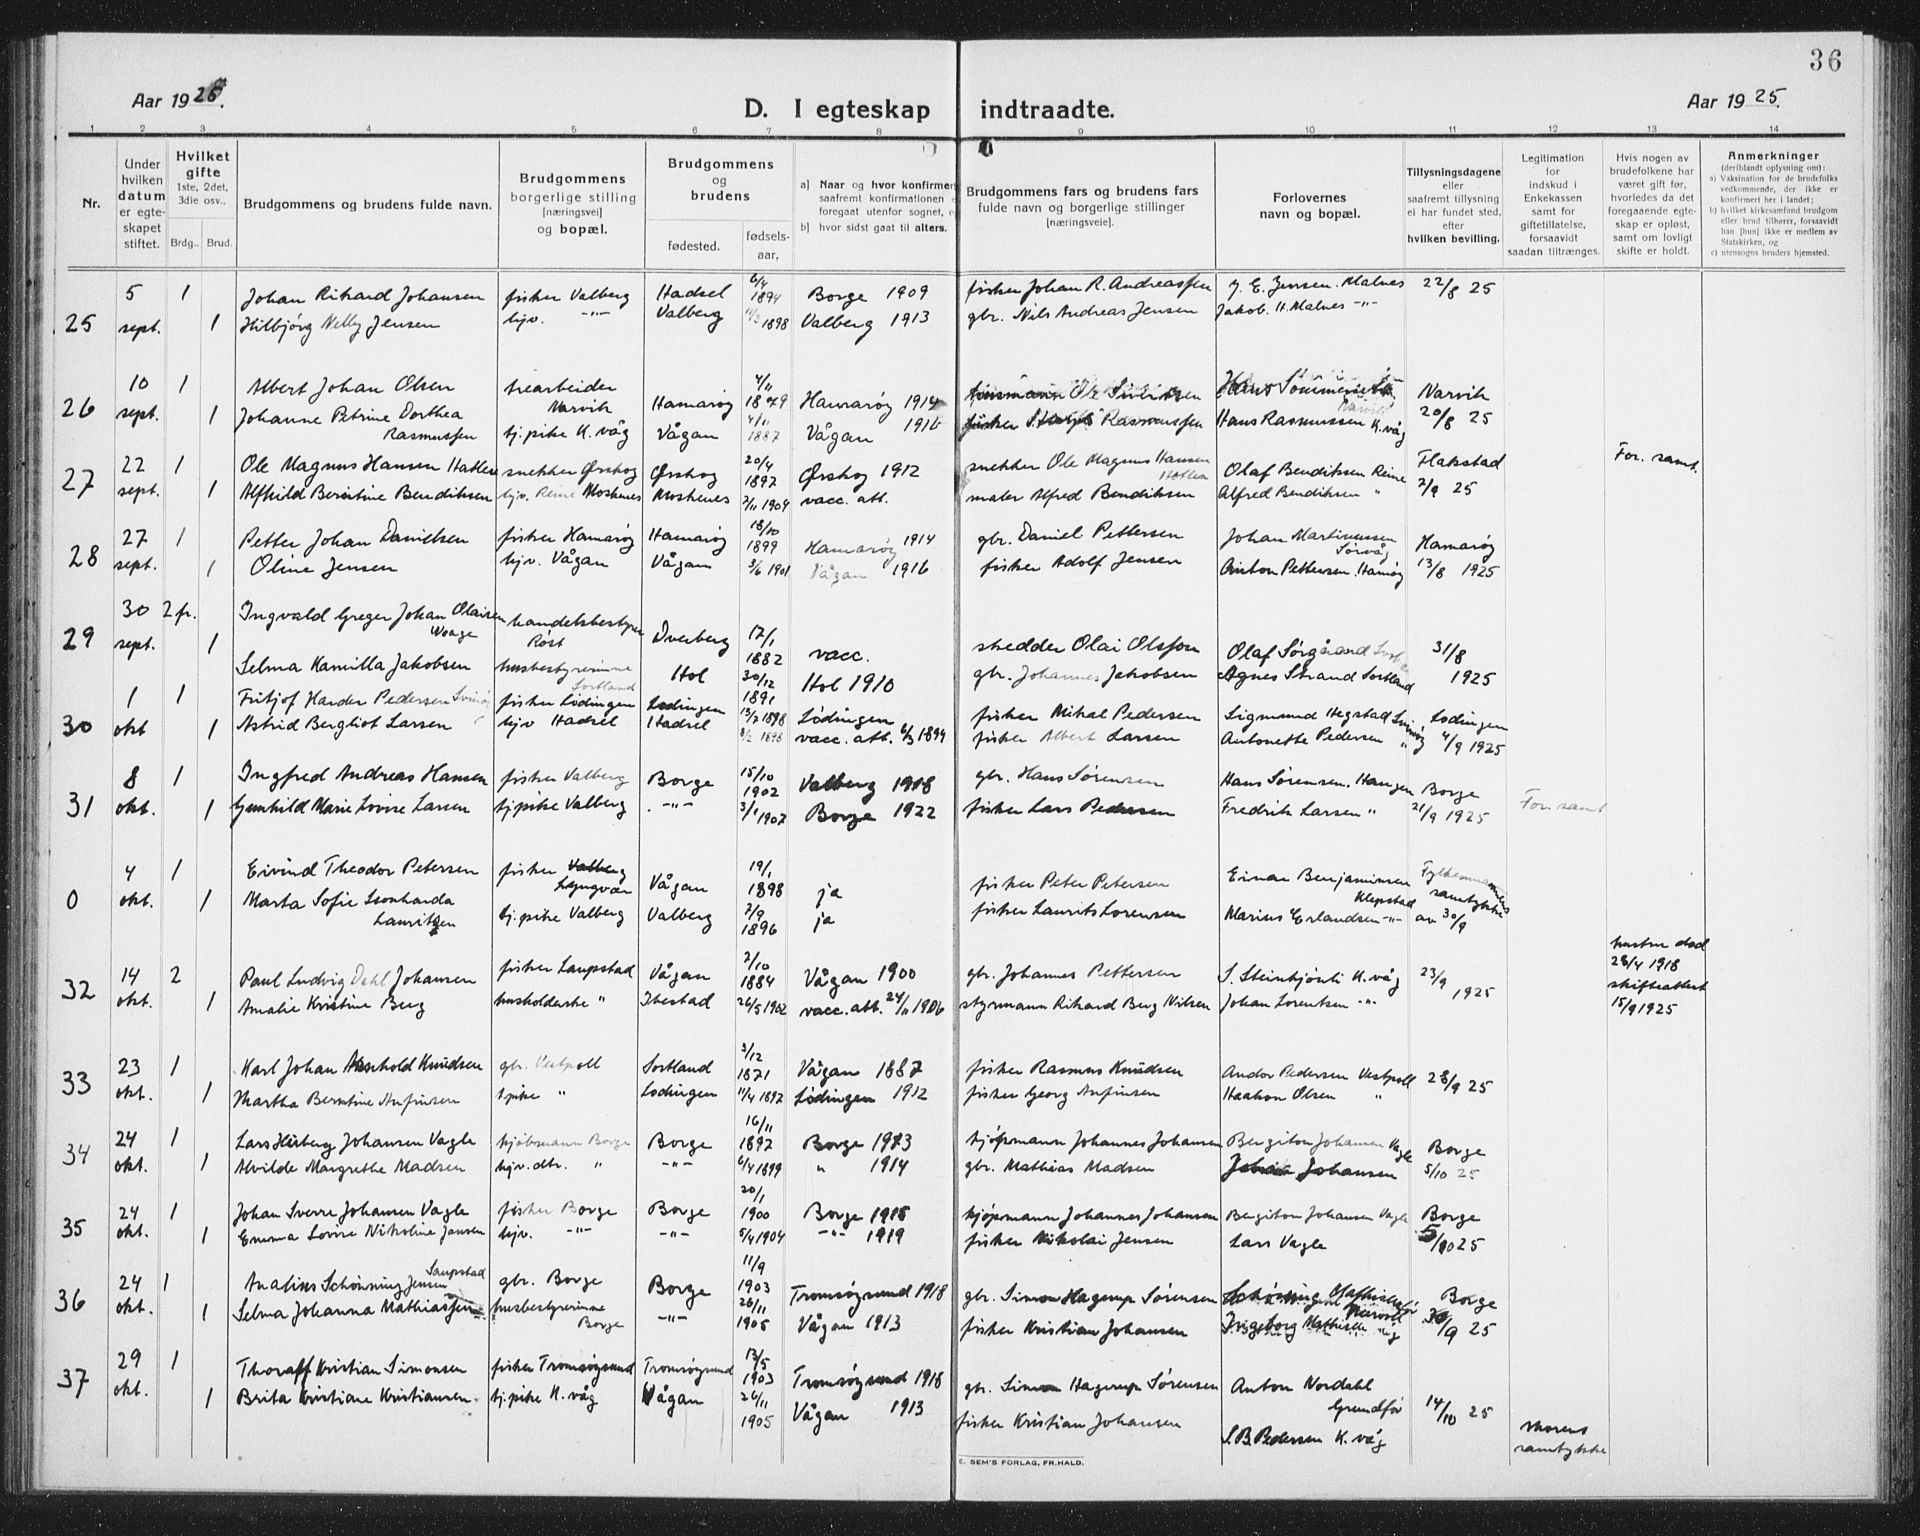 36
Aar 1925.
D. I egteskap indtraadte.
Aar 1925.
1 2 3 4 5 6 7 8 9 10 11 12 13 14
Nr.
Under hvilken datum er egteskapet stiftet.
Hvilket gifte 1ste, 2det, 3die osv..
Brdg.. Brud.
Brudgommens og brudens fulde navn.
Brudgommens borgerlige stilling [næringsvei] og bopæl.
Brudgommens og brudens
fødested. fødselsaar,
a] Naar og hvor konfirmert saafremt konfirmationen er foregaat utenfor sognet, og
b] hvor sidst gaat til alters.
Brudgommens fars og brudens fars fulde navn og borgerlige stillinger [næringsveie].
Forlovernes navn og bopæl.
Tillysningsdagene eller saafremt tillysning ei har fundet sted, efter hvilken bevilling.
Legitimation for indskud i Enkekassen samt for giftetillatelse, forsaavidt saadan tiltrænges.
Hvis nogen av brudefolkene har været gift før, hvorledes da det foregaaende egteskap er opløst, samt om lovlig skifte er holdt.
Anmerkninger (deriblandt oplysning om):
a) Vaksination for de brudefolks vedkommende, der ikke er konfirmert her i landet;
b) hvilket kirkesamfund brudgom eller brud tilhører, forsaavidt han [hun] ikke er medlem av Statskirken, og
c) utensogns bruders hjemsted.
25 5 sept. 1 Johan Rikard Johansen fisker Valberg Hadsel 6/4 1894 Borge 1909 fisker Johan R. Andreassen J. E. Jensen. Malnes 22/8 25
1 Hilbjörg Nelly Jensen hjv. -"- Valberg 11/3 1898 Valberg 1913 gbr. Nils Andreas Jensen Jakob. H. Malnes -"-
26 10 sept. 1 Albert Johan Olsen trearbeider Narvik Hamarøy 4/11 1879 Hamarøy 1914 Narvik
1 Johanne Petrine Dorthea Rasmussen tj. pike K. våg Vågan 4/11 1887 Vågan 1916 fisker Rasmussen Hans Rasmussen K. våg 20/8 25
27 22 sept. 1 Ole Magnus Hansen Hatlen snekker Ørskog Ørskog 20/4 1897 Ørskog 1912 snekker Ole Magnus Hansen Hatlen Olaf Bendiksen Reine Flakstad For. samt.
1 Alfhild Berntine Bendiksen hjv. Reine Moskenes Moskenes 2/11 1904 vacc. att. maler Alfred Bendiksen Alfred Bendiksen " 2/9 25
28 27 sept. 1 Petter Johan Danielsen fisker Hamarøy Hamarøy 18/10 1899 Hamarøy 1914 gbr. Daniel Pettersen Johan Martinussen Sørvåg Hamarøy
1 Oline Jensen hjv. Vågan Vågan 3/6 1901 Vågan 1916 fisker Adolf Jensen Anton Pettersen. Hamøy 13/8 1925
29 30 sept. 2 fr. Ingvald Greger Johan Olaisen Waage handelsbestyrer Røst Dverberg 17/1 1882 vacc. skredder Olai Olsson Olaf Sörgård 31/8
1 Selma Kamilla Jakobsen husbestyrerinne Sortland Hol 30/12 1891 Hol 1910 gbr. Johannes Jakobsen Agnes Strand Sortland 1925
30 1 okt 1 Fritjof Harder Pedersen Svinöy fisker Lödingen Lödingen 13/7 1898 Lödingen fisker Mikal Pedersen Sigmund Hegstad Svinöy Lodingen
1 Astrid Bergliot Larsen hjv Hadsel Hadsel 3/2 1898 vacc. att. 6/3 1894 fisker Albert Larsen Antonette Pedersen " 4/9 1925
31 8 okt. 1 Ingfred Andreas Hansen fisker Valberg Borge 15/10 1902 Valberg 1918 gbr. Hans Sörensen Hans Sörensen. Haugen Borge
1 Gunhild Marie Lovise Larsen tj. pike Valberg -"- 3/1 1907 Borge 1922 fisker Lars Pedersen Fredrik Larsen " 21/9 1925 For. samt
0 4 okt. 1 Eivind Theodor Petersen fisker Valberg Lyngvær Vågan 19/1 1898 ja fisker Peter Petersen Einar Benjaminsen Klepstad Fylkesmannens samtykke
1 Marta Sofie Leonharda Lauritzen tj. pike Valberg Valberg 2/9 1896 ja fisker Laurits Lorensen Marius Erlandsen -"- av 30/9
32 14 okt. 2 Paul Ludvig Dahl Johansen fisker Laupstad Vågan 2/10 1884 Vågan 1900 gbr. Johannes Pettersen S. Steinhjönti K. våg 23/9 hustru död 28/4 1918 skifteattest 15/9 1925
1 Amalie Kristine Berg husholderske " Ibestad 26/5 1902 vacc. att. 24/11 1906 styrmann Rikard Berg Nilsen Johan Lorentsen -"- 1925
33 23 okt. 1 Karl Johan Arnhold Knudsen gbr. Vestpoll Sortland 3/12 1871 Vågan 1887 fisker Rasmus Knudsen Andor Pedersen Vestpoll 28/9 25
1 Martha Berntine Anfinsen tj pike " Lodingen 11/4 1897 Lödingen 1912 fisker Georg Anfinsen Haakon Olsen "
34 24 okt. 1 Lars Hisberg Johansen Vagle kjöbmann Borge Borge 16/11 1897 Borge 1913 kjöpmann Johannes Johansen Bergiton Johansen Vagle Borge
1 Alvilde Margrethe Madsen hjv. dtr. " -"- 6/4 1899 " 1914 gbr. Mathias Madsen Johan Johansen 5/10 25
35 24 okt. 1 Johan Sverre Johansen Vagle fisker Borge Borge 20/1 1900 Borge 1915 kjöpmann Johannes Johansen Bergiton Johansen Vagle Borge
1 Emma Lovise Nikoline Jensen hjv. -"- -"- 5/4 1904 -"- 1919 fisker Nikolai Jensen Lars Vagle 5/10 25
36 24 okt. 1 Analius Schönning Jensen Laupstad gbr. Borge Borge 11/9 1903 Tromsöysund 1918 gbr. Simon Hagerup Sörensen Borge
1 Selma Johanna Mathiassen husbestyrerinne Borge -"- 26/11 1905 Vågan 1913 fisker Kristian Johansen Ingeborg /9 25
37 29 okt. 1 Thoralf Kristian Simonsen fisker Tromsöysund Tromsöysund 13/5 1903 Tromsöysund 1918 gbr. Simon Hagerup Sörensen Anton Nordahl Grundfør 14/10 25
1 Brita Kristiane Kristiansen. tj. pike K. våg Vågan 26/11 1905 Vågan 1913 fisker Kristian Johansen S. B. Pedersen K. våg samtykke
E. SEM'S FORLAG, FR.HALD.